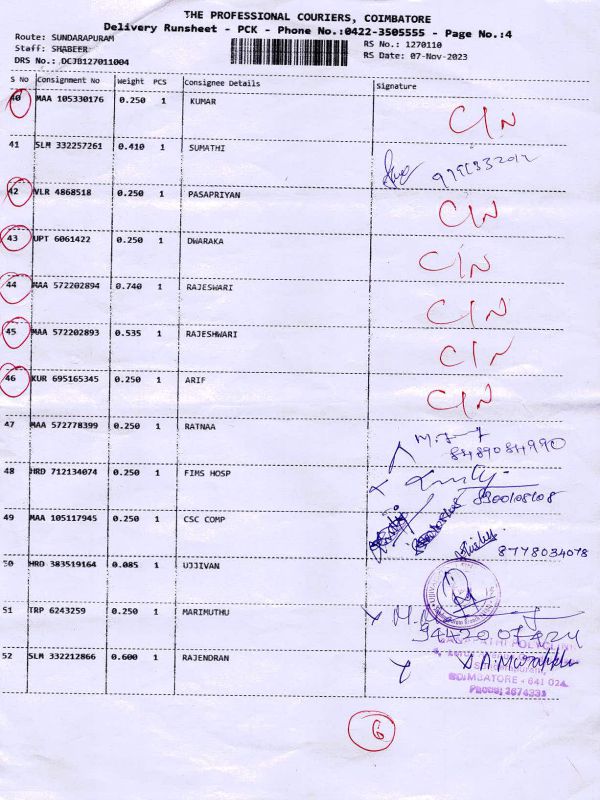 THE PROFESSIONAL COURIERS, COIMBATORE
Delivery Runsheet - PCK - Phone No.:0422-3505555 - Page No.:4
Route: SUNDARAPURAM
RS No.: 1270110
Staff: SHABEER
RS Date: 07-Nov-2023
DRS No.: DCJB127011004
S No Consignment No Weight PCS Consignee Details Signature
40 MAA 105330176 0.250 1 KUMAR CIN
41 SLM 332257261 0.410 1 SUMATHI
42 VLR 4868518 0.250 1 PASAPRIYAN CIN
43 UPT 6061422 0.250 1 DWARAKA CIN
44 MAA 572202894 0.740 1 RAJESWARI CIN
45 MAA 572202893 0.535 1 RAJESHWARI CIN
46 KUR 695165345 0.250 1 ARIF CIN
47 MAA 572778399 0.250 1 RATNAA 8489084990
48 HRD 712134074 0.250 1 FIMS HOSP
49 MAA 105117945 0.250 1 CSC COMP 8778034078
50 HRD 383519164 0.085 1 UJJIVAN
51 TRP 6243259 0.250 1 MARIMUTHU
52 SLM 332212866 0.600 1 RAJENDRAN
COIMBATORE - 641 024.
Phone: 2674333
6